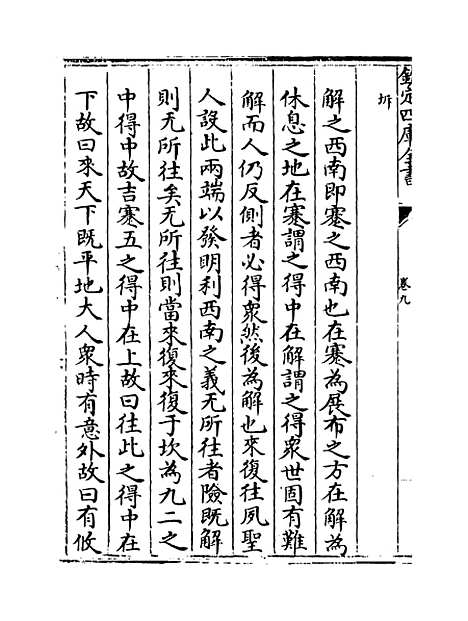 欽定四庫全書
卷九
坼
解之西南即蹇之西南也在蹇為展布之方在解為
休息之地在蹇謂之得中在解謂之得衆世固有難
解而人仍反側者必得衆然後為解也來復往夙聖
人設此兩端以發明利西南之義无所往者險既解
則无所往矣无所往則當來復來復于坎為九二之
中得中故吉蹇五之得中在上故曰往此之得中在
下故曰來天下既平地大人衆時有意外故曰有攸